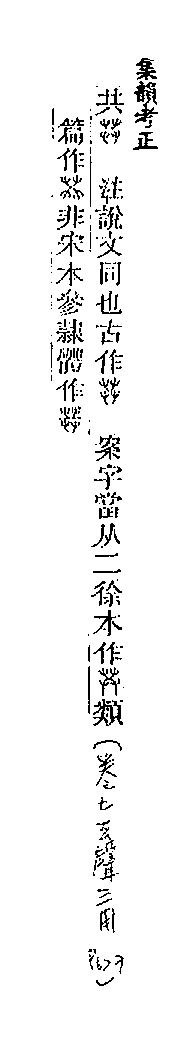 集韻考正
共 注說文同也古作 案字當从二徐本作 類
篇作 非宋本參隸體作
(卷七去聲三用